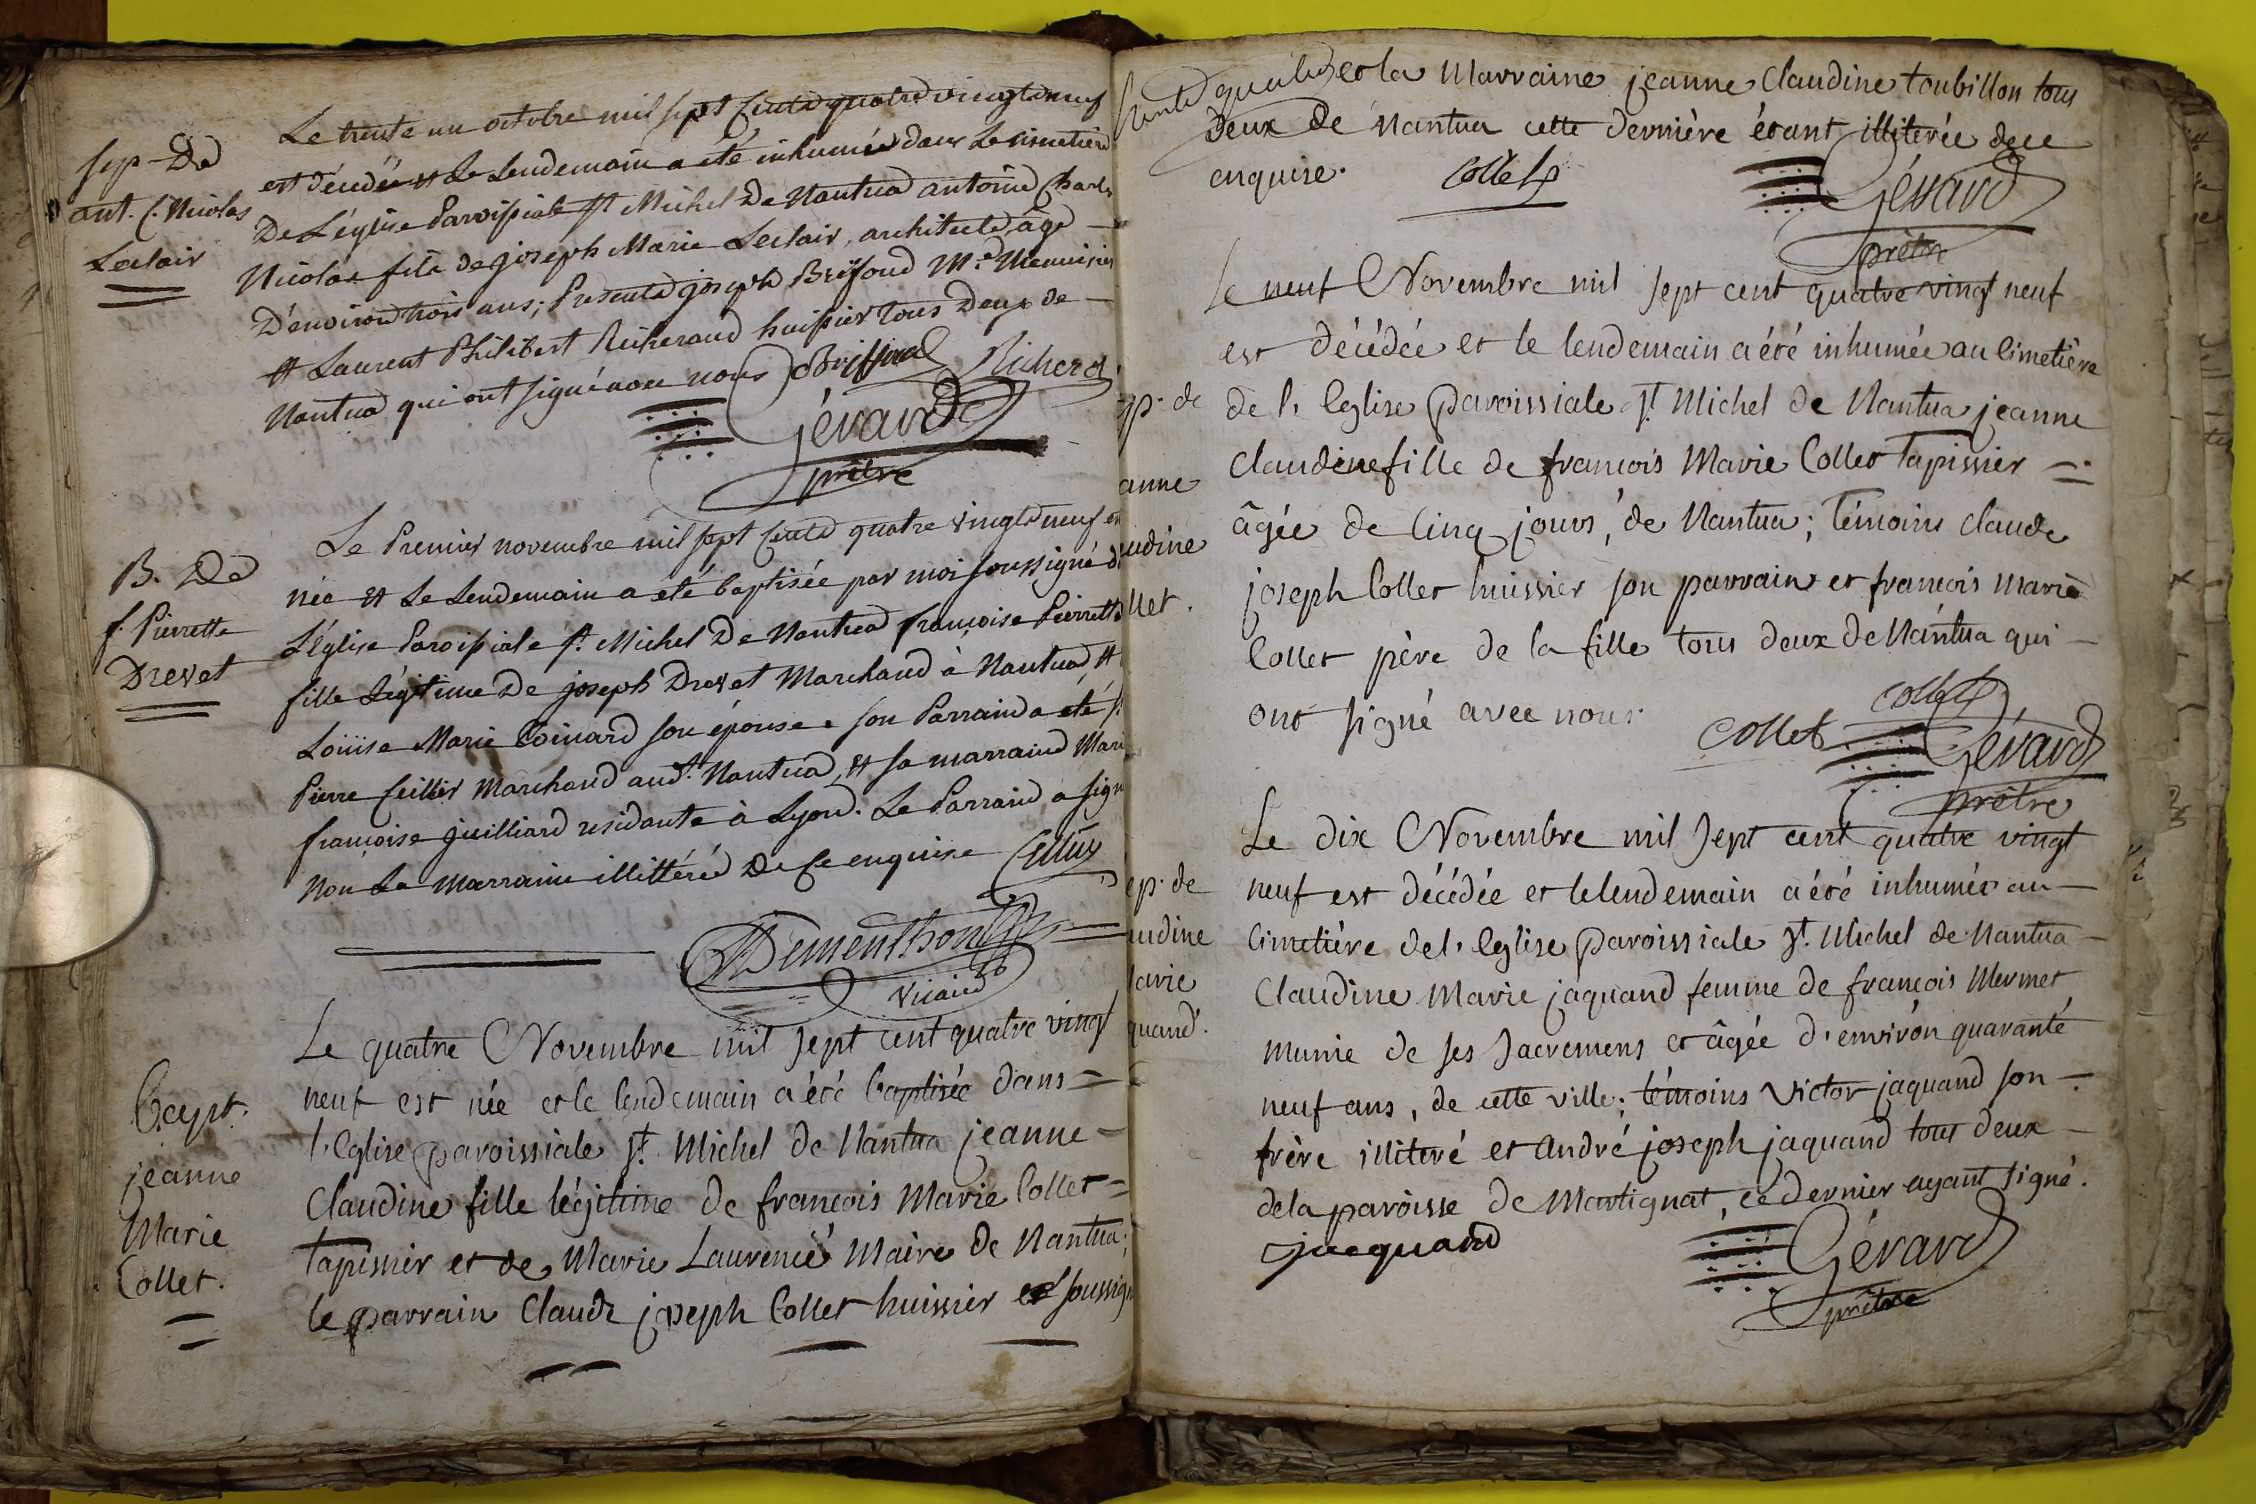 Sep. De
ant. C. Nicolas
Leclair
Le trente un octobre mil sept Cents quatre vingts neuf
est décédé et Le Lendemain a été inhumé dans Le cimetière
De L'église Paroissiale St Michel De Nantua antoine Charles
Nicolas fils de joseph Marie Leclair, architecte, âgé
D'environ trois ans; Presents joseph Brissoud Me. Menuisier
et Laurent Philibert Richerand huissier tous Deux de
Nantua qui ont signé avec nous Brissoud Richerd
Gérard
prêtre
B. De
f. Pierrette
Drevet
Le Premier novembre mil sept Cents quatre vingts neuf est
née et Le Lendemain a été baptisée par moi soussigné d
L'église Paroissiale St. Michel De Nantua françoise Pierrette
fille Légitime De joseph Drevet Marchand à Nantua, et
Loüise Marie Coinard son épouse. son Parrain a été s.
Pierre Cuillier Marchand aud.t Nantua, et sa marraine Mari
françoise juilliard residante à Lyon. Le Parrain a sign
non La marraine illittérée De Ce enquise
Dementhon
Vicaire
Bapt.
jeanne
Marie
Collet.
Le quatre Novembre mil sept cent quatre vingt
neuf est née et le lendemain a été baptisée dans
l'Eglise paroissiale St. Michel de Nantua jeanne
Claudine fille légitime de francois Marie Collet
tapissier et de Marie Laurence Maire de Nantua;
le parrain Claude joseph Collet huissier soussign
et la Marraine jeanne Claudine toubillon tous
Deux de Nantua cette dernière étant illiterée de ce
enquise. Collet
Gérard
prêtre
ep. de
anne
udine
llet.
Le neuf Novembre mil sept cent quatre vingt neuf
est décédée et le lendemain a été inhumée au Cimetière
de l'Eglise paroissiale St. Michel de Nantua jeanne
Claudine fille de francois Marie Collet Tapissier
âgée de Cinq jours, de Nantua; Témoins Claude
joseph Collet huissier son parrain et francois Marie
Collet père de la fille tous deux de Nantua qui
ont signé avec nous.
Collet Collet
Gérard
prêtre
ep. de
udine
arie
quand.
Le dix Novembre mil sept cent quatre vingt
neuf est décédée et le lendemain a été inhumée au
Cimetière de l'Eglise paroissiale St. Michel de Nantua
Claudine Marie jaquand femme de francois Mermet
munie de ses Sacremens et âgée d'environ quarante
neuf ans, de cette ville; témoins Victor jaquand son
frère illiteré et André joseph jaquand tous deux
de la paroisse de Martignat, ce dernier ayant signé.
jacquand
Gérard
prêtre